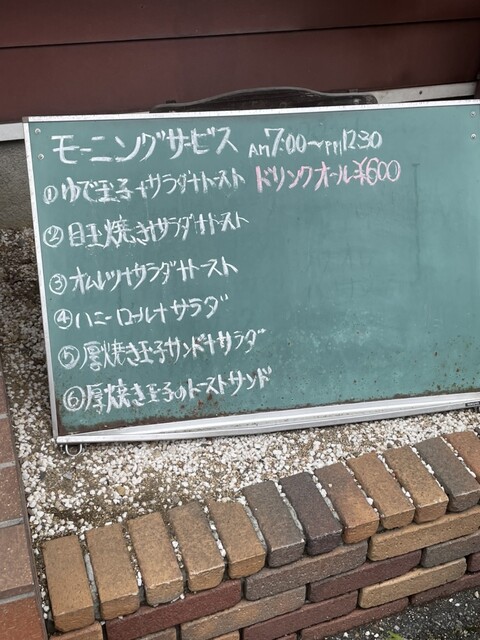 モーニングサービス AM7:00〜PM12:30
①ゆで玉子+サラダ+トースト ドリンクオール¥600
②目玉焼き+サラダ+トースト
③オムレツ+サラダ+トースト
④ハニーロール+サラダ
⑤厚焼き玉子サンド+サラダ
⑥厚焼き玉子のトーストサンド